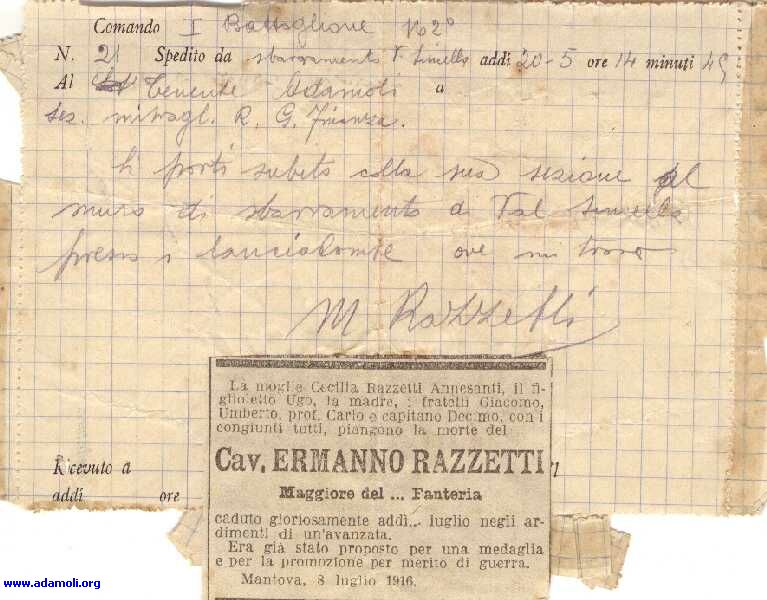 Comando I Battaglione 162°
N. 21 Spedito da sbarramento V. Sinello addì 20-5 ore 14 minuti 45
Al Tenente Adamoli a
sez. mitragl. R. G. Finanza.
Si porti subito colla sua sezione al
muro di sbarramento di Val
presso i lanciabombe ove mi trovo
M Razzetti
La moglie Cecilia Razzetti Annesanti, il fi-
glioletto Ugo, la madre, i fratelli Giacomo,
Umberto, prof. Carlo e capitano Decimo, con i
congiunti tutti, piangono la morte del
Cav. ERMANNO RAZZETTI
Maggiore del ... Fanteria
caduto gloriosamente addì... luglio negli ar-
dimenti di un'avanzata.
Era già stato proposto per una medaglia
e per la promozione per merito di guerra.
Mantova, 8 luglio 1916.
Ricevuto a
addì ore
www.adamoli.org